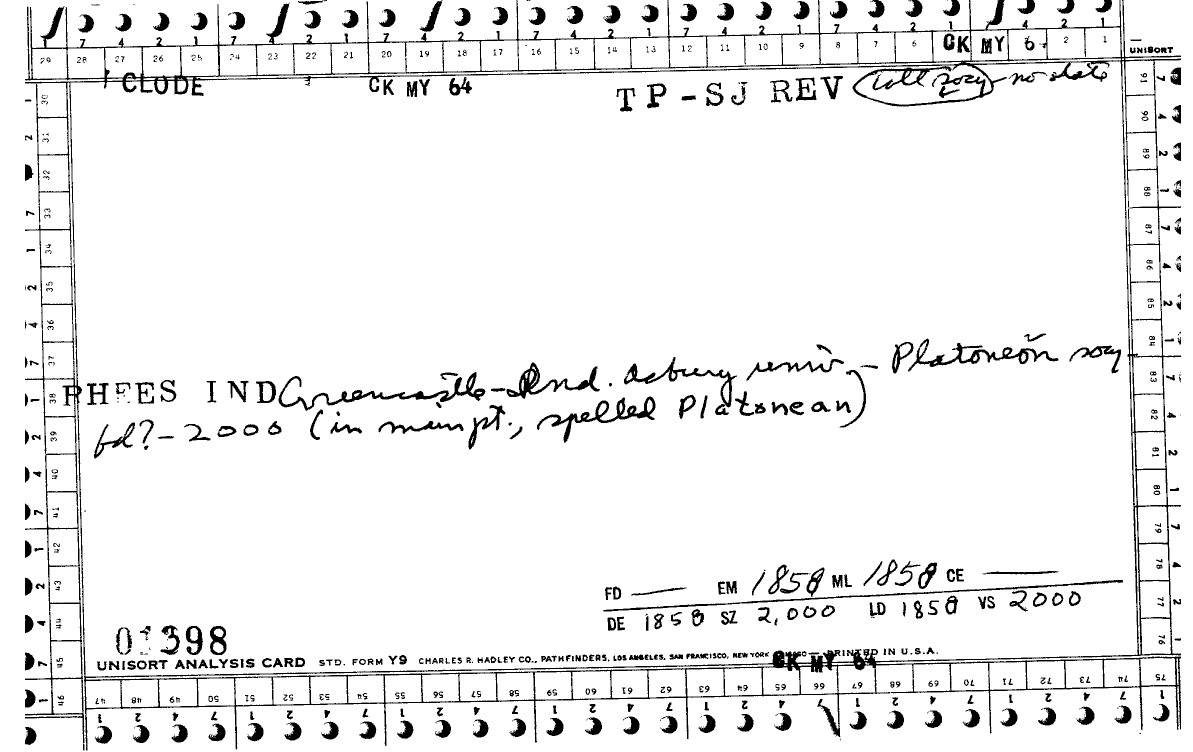 7 4 2 1 7 4 2 1 7 4 2 1 7 4 2 1 7 4 2 1 7 4 2 1
29 28 27 26 25 24 23 22 21 20 19 18 17 16 15 14 13 12 11 10 9 8 7 6 CK MY 6 2 1 UNISORT
CLODE CK MY 64 TP-SJ REV coll socy - no date
PHEES IND Greencastle - Ind. Asbury univ. - Platoneon socy
fd? - 2000 (in main pt., spelled Platonean)
FD — EM 1858 ML 1858 CE —
DE 1858 SZ 2,000 LD 1858 VS 2000
01398
UNISORT ANALYSIS CARD STD. FORM Y9 CHARLES R. HADLEY CO., PATHFINDERS, LOS ANGELES, SAN FRANCISCO, NEW YORK — PRINTED IN U.S.A.
CK MY 64
30 31 32 33 34 35 36 37 38 39 40 41 42 43 44 45 46
91 90 89 88 87 86 85 84 83 82 81 80 79 78 77 76
47 48 49 50 51 52 53 54 55 56 57 58 59 60 61 62 63 64 65 66 67 68 69 70 71 72 73 74 75